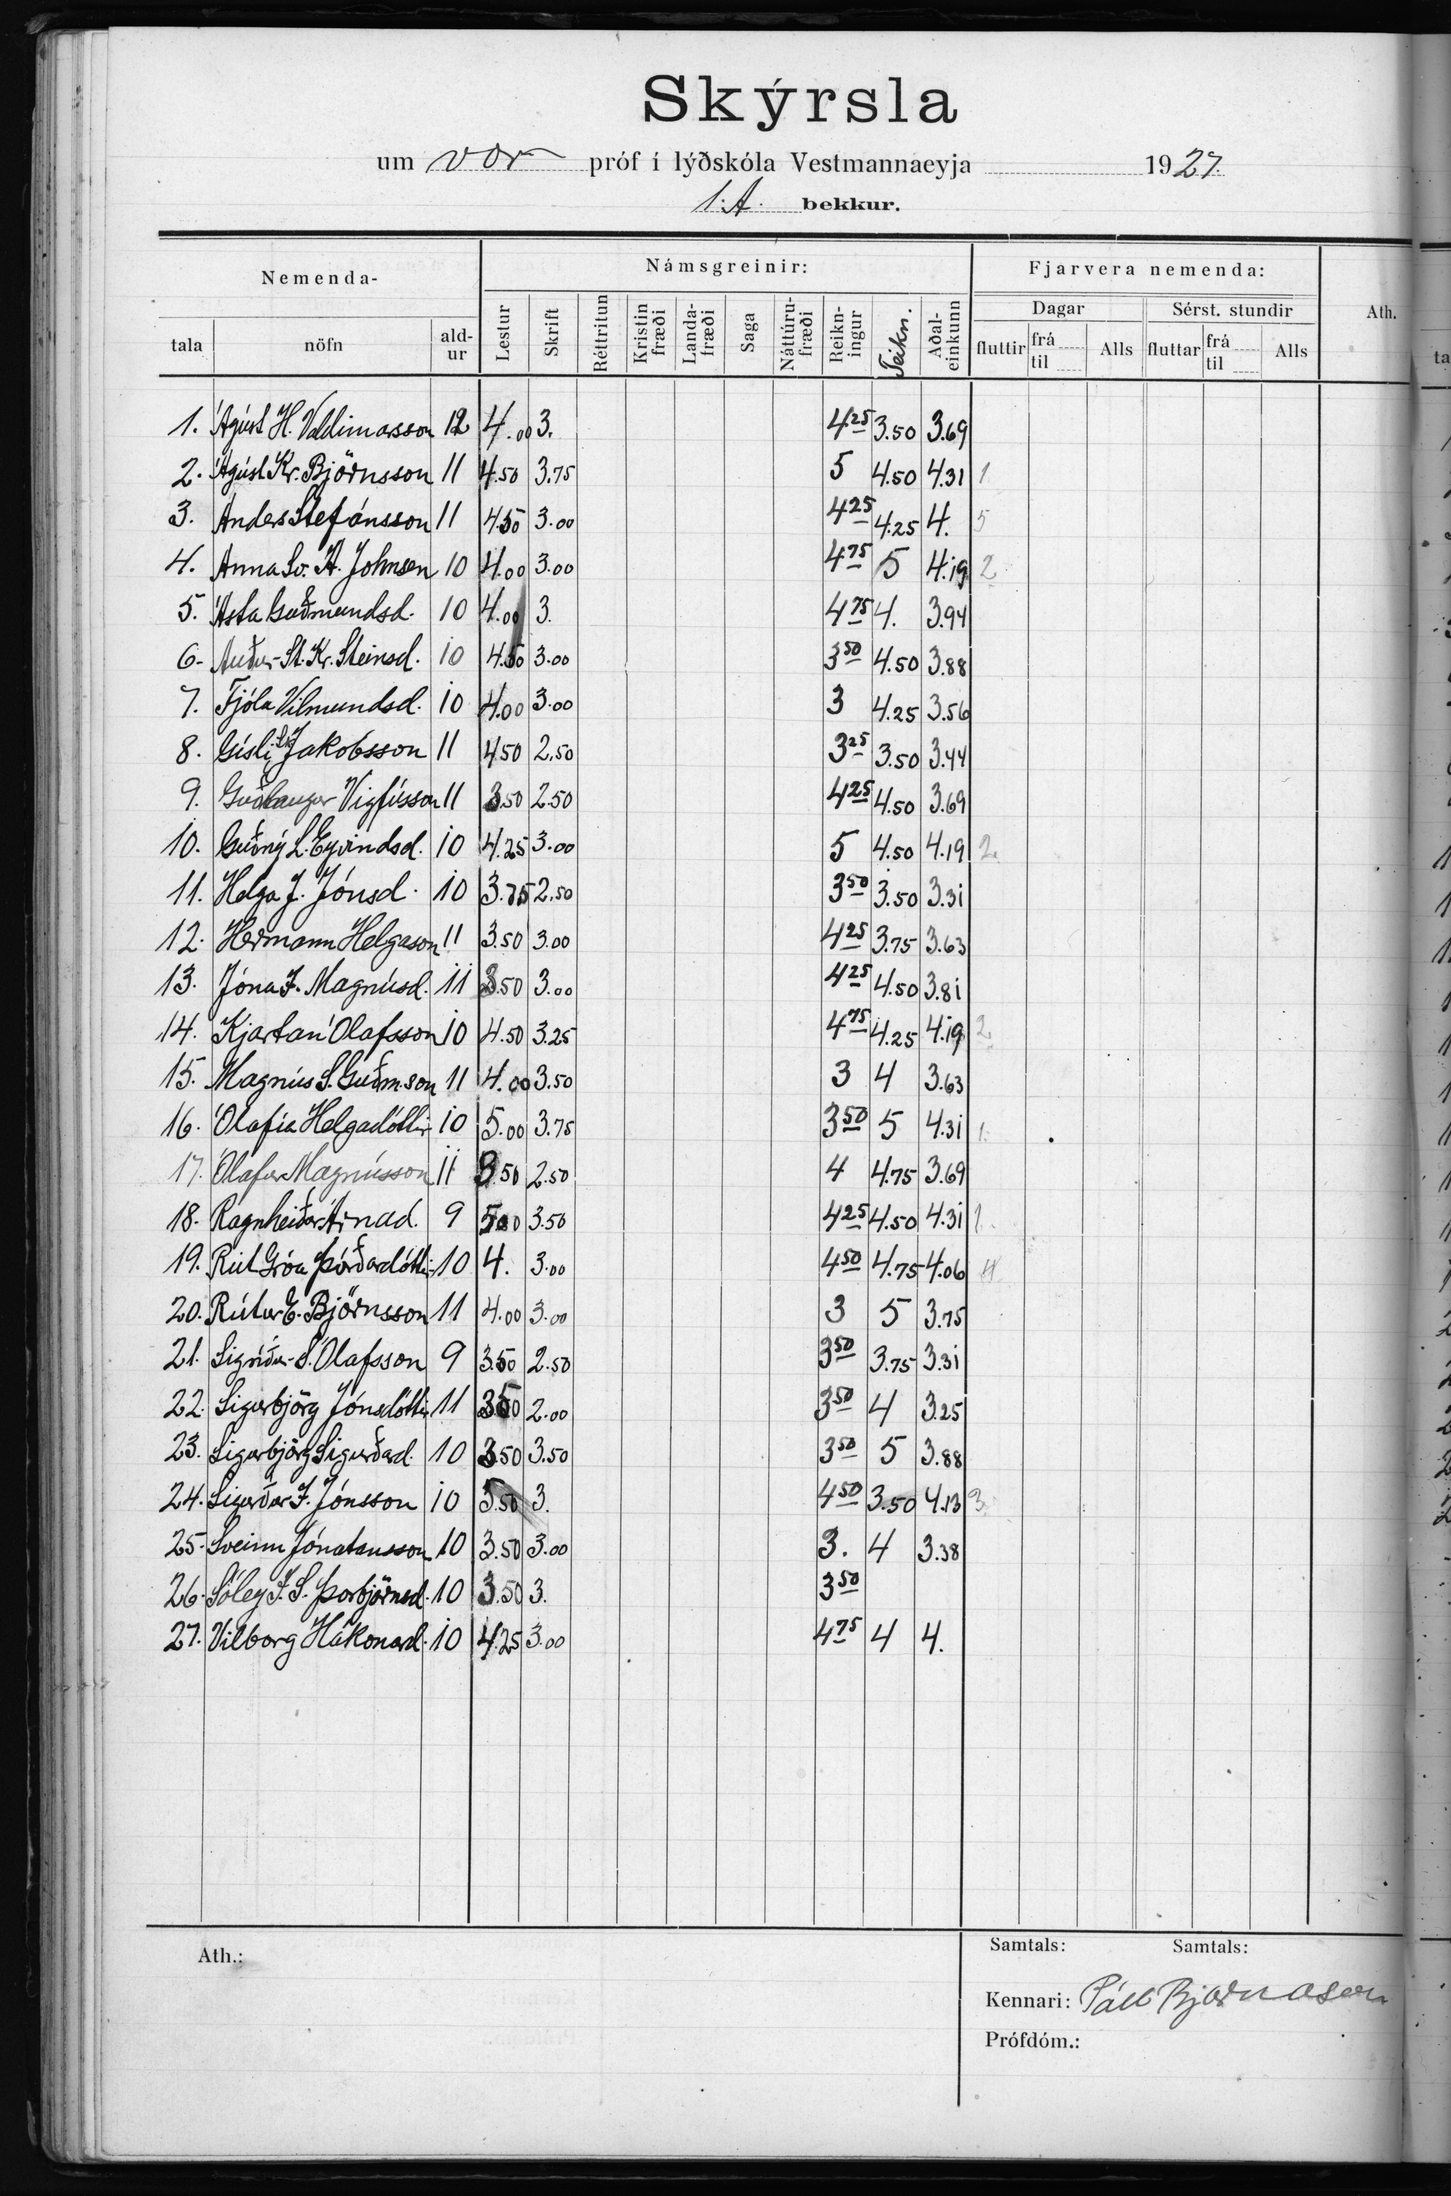 Skýrsla
um vor próf í lýðskóla Vestmannaeyja 1927.
1. A. bekkur.
Nemenda- Námsgreinir: Fjarvera nemenda: Ath.
tala nöfn ald-ur Lestur Skrift Réttritun Kristin fræði Landa-fræði Saga Náttúru-fræði Reikn-ingur Teikn. Aðal-einkunn Dagar Sérst. stundir
fluttir frá til Alls fluttar frá til Alls
1. Ágúst H. Valdimarsson 12 4.00 3. 4 25 3.50 3.69
2. Ágúst Kr. Björnsson 11 4.50 3.75 5 4.50 4.31 1
3. Anders Stefánsson 11 4.50 3.00 4 25 4.25 4. 5
4. Anna Sv. Á. Johnsen 10 4.00 3.00 4 75 5 4.19 2
5. Ásta Guðmundsd. 10 4.00 3. 4 75 4. 3.94
6. Auður St. Kr. Steinsd. 10 4.50 3.00 3 50 4.50 3.88
7. Fjóla Vilmundsd. 10 4.00 3.00 3 4.25 3.56
8. Gísli Jakobsson 11 4.50 2.50 3 25 3.50 3.44
9. Guðlaugur Vigfússon 11 3.50 2.50 4 25 4.50 3.69
10. Guðný L. Eyvindsd. 10 4.25 3.00 5 4.50 4.19 2.
11. Helga J. Jónsd. 10 3.75 2.50 3 50 3.50 3.31
12. Hermann Helgason 11 3.50 3.00 4 25 3.75 3.63
13. Jóna F. Magnúsd. 11 3.50 3.00 4 25 4.50 3.81
14. Kjartan Ólafsson 10 4.50 3.25 4 75 4.25 4.19 2
15. Magnús S. Guðm.son 11 4.00 3.50 3 4 3.63
16. Ólafía Helgadóttir 10 5.00 3.75 3 50 5 4.31 1.
17. Ólafur Magnússon 11 3.50 2.50 4 4.75 3.69
18. Ragnheiður Árnad. 9 5.00 3.50 4 25 4.50 4.31 1.
19. Rut Gróa Þórðardóttir 10 4. 3.00 4 50 4.75 4.06 4
20. Rútur E. Björnsson 11 4.00 3.00 3 5 3.75
21. Sigríður S. Ólafsson 9 3.50 2.50 3 50 3.75 3.31
22. Sigurbjörg Jónsdóttir 11 3.50 2.00 3 50 4 3.25
23. Sigurbjörg Sigurðard. 10 3.50 3.50 3 50 5 3.88
24. Sigurður F. Jónsson 10 5.50 3. 4 50 3.50 4.13 3
25. Sveinn Jónatansson 10 3.50 3.00 3. 4 3.38
26. Sóley F. S. Þorbjörnsd. 10 3.50 3. 3 50
27. Vilborg Hákonard. 10 4.25 3.00 4 75 4 4.
Ath.: Samtals: Samtals:
Kennari: Páll Bjarnason
Prófdóm.: